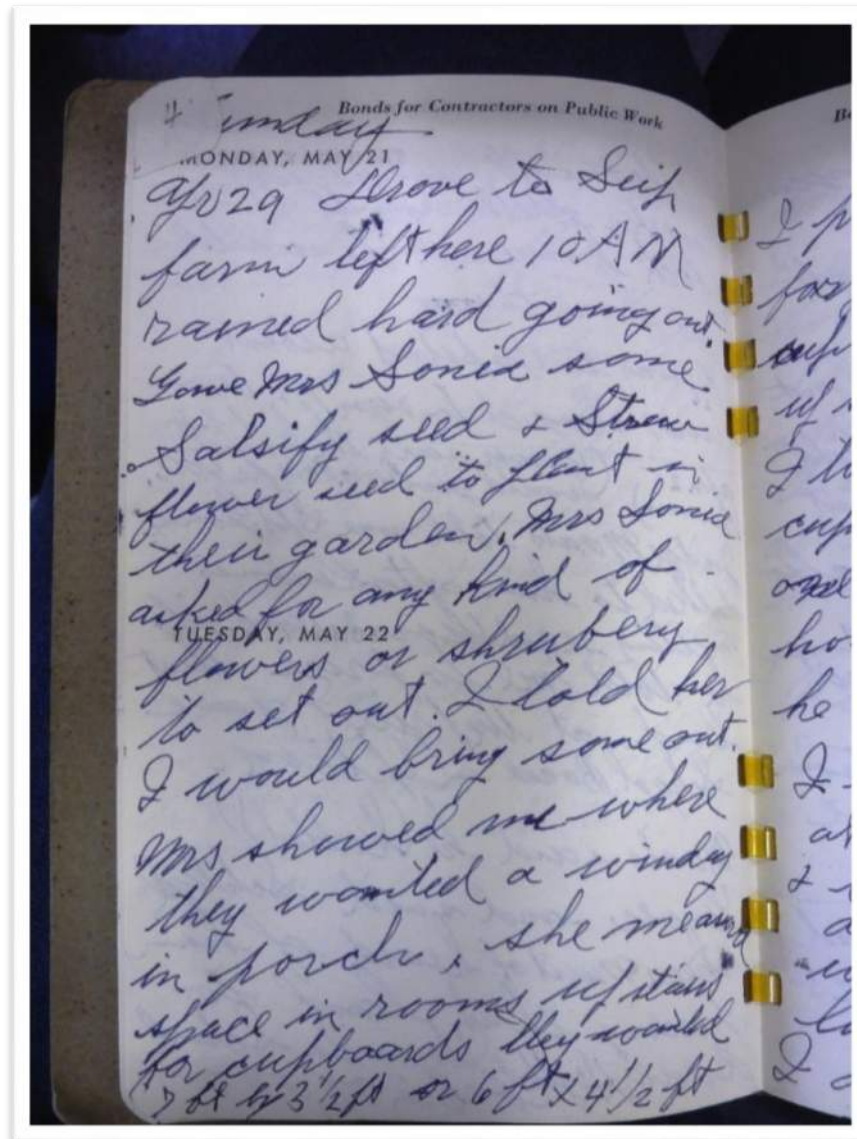 Bonds for Contractors on Public Work
Sunday
MONDAY, MAY 21
29 Drove to Seip
farm left here 10 AM
rained hard going out.
Gave Mrs Sonia some
Salsify seed & Straw
flower seed to plant in
their garden. Mrs Sonia
asked for any kind of
TUESDAY, MAY 22
flowers or shrubery
to set out. I told her
I would bring some out.
Mrs showed me where
they wanted a winday
in porch, she measured
space in rooms upstairs
for cupboards they wanted
7 ft by 3 1/2 ft or 6 ft x 4 1/2 ft